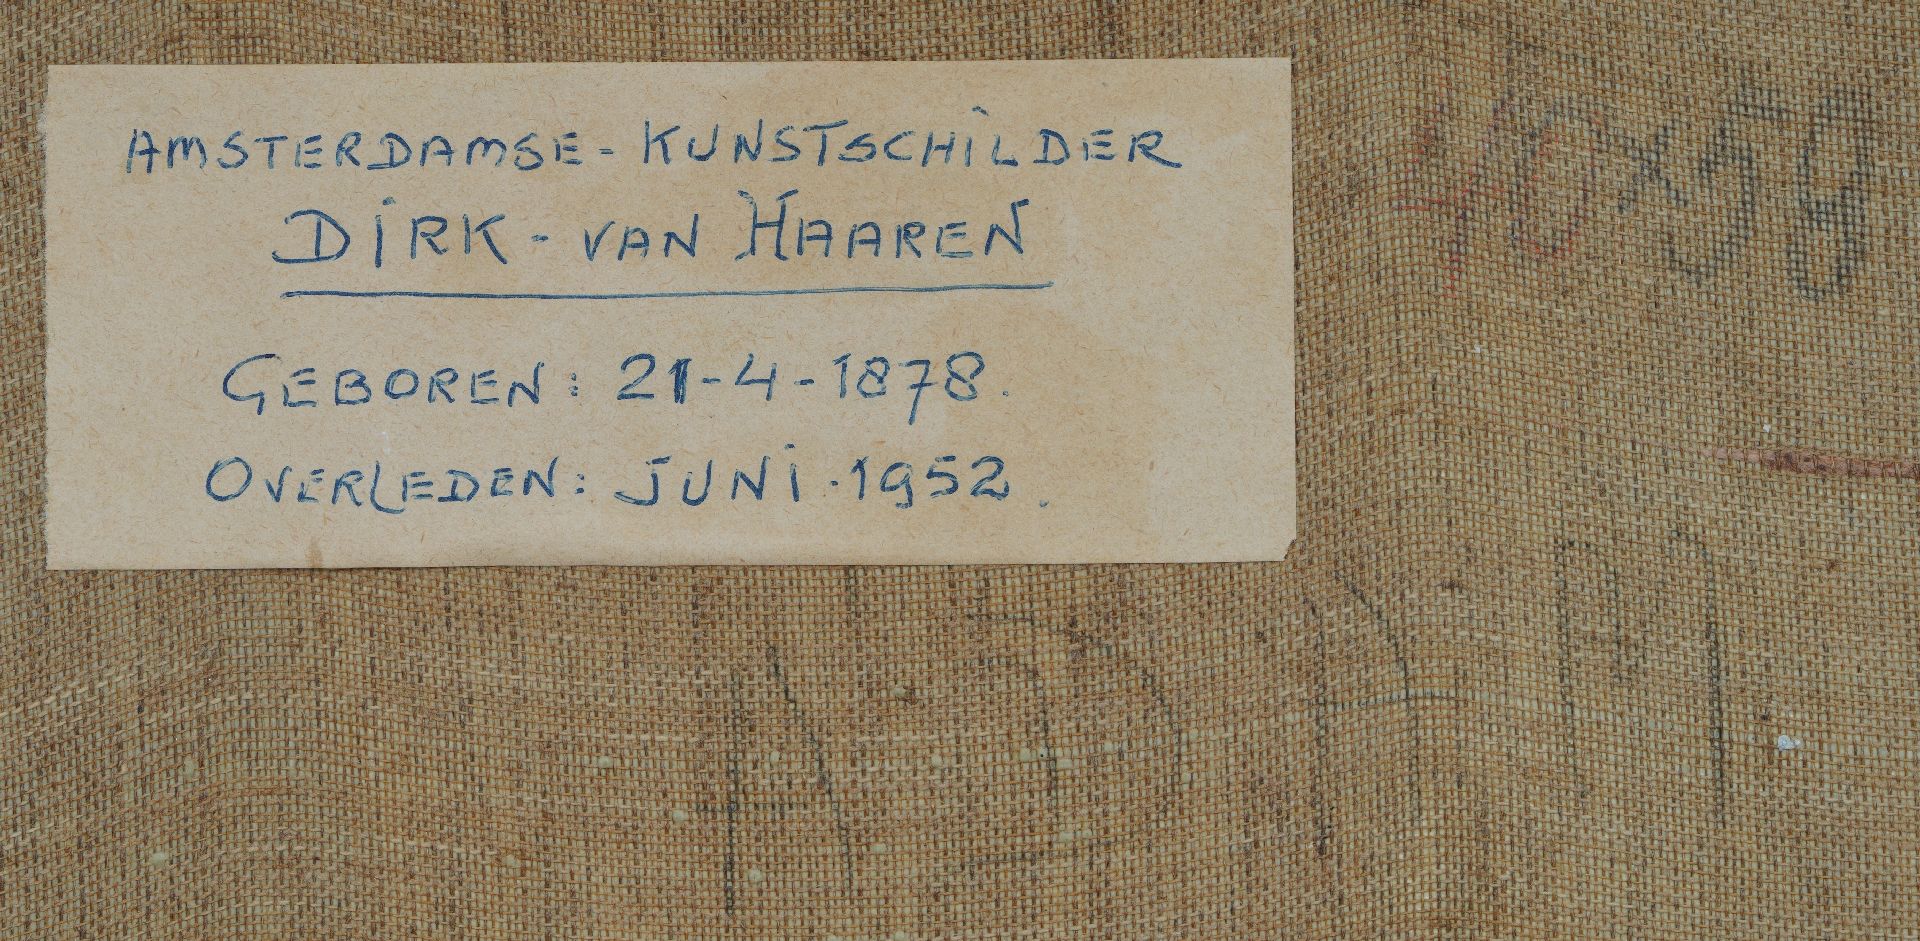 AMSTERDAMSE - KUNSTSCHILDER
DIRK - VAN HAAREN
GEBOREN: 21-4-1878.
OVERLEDEN: JUNI. 1952.
ADAM